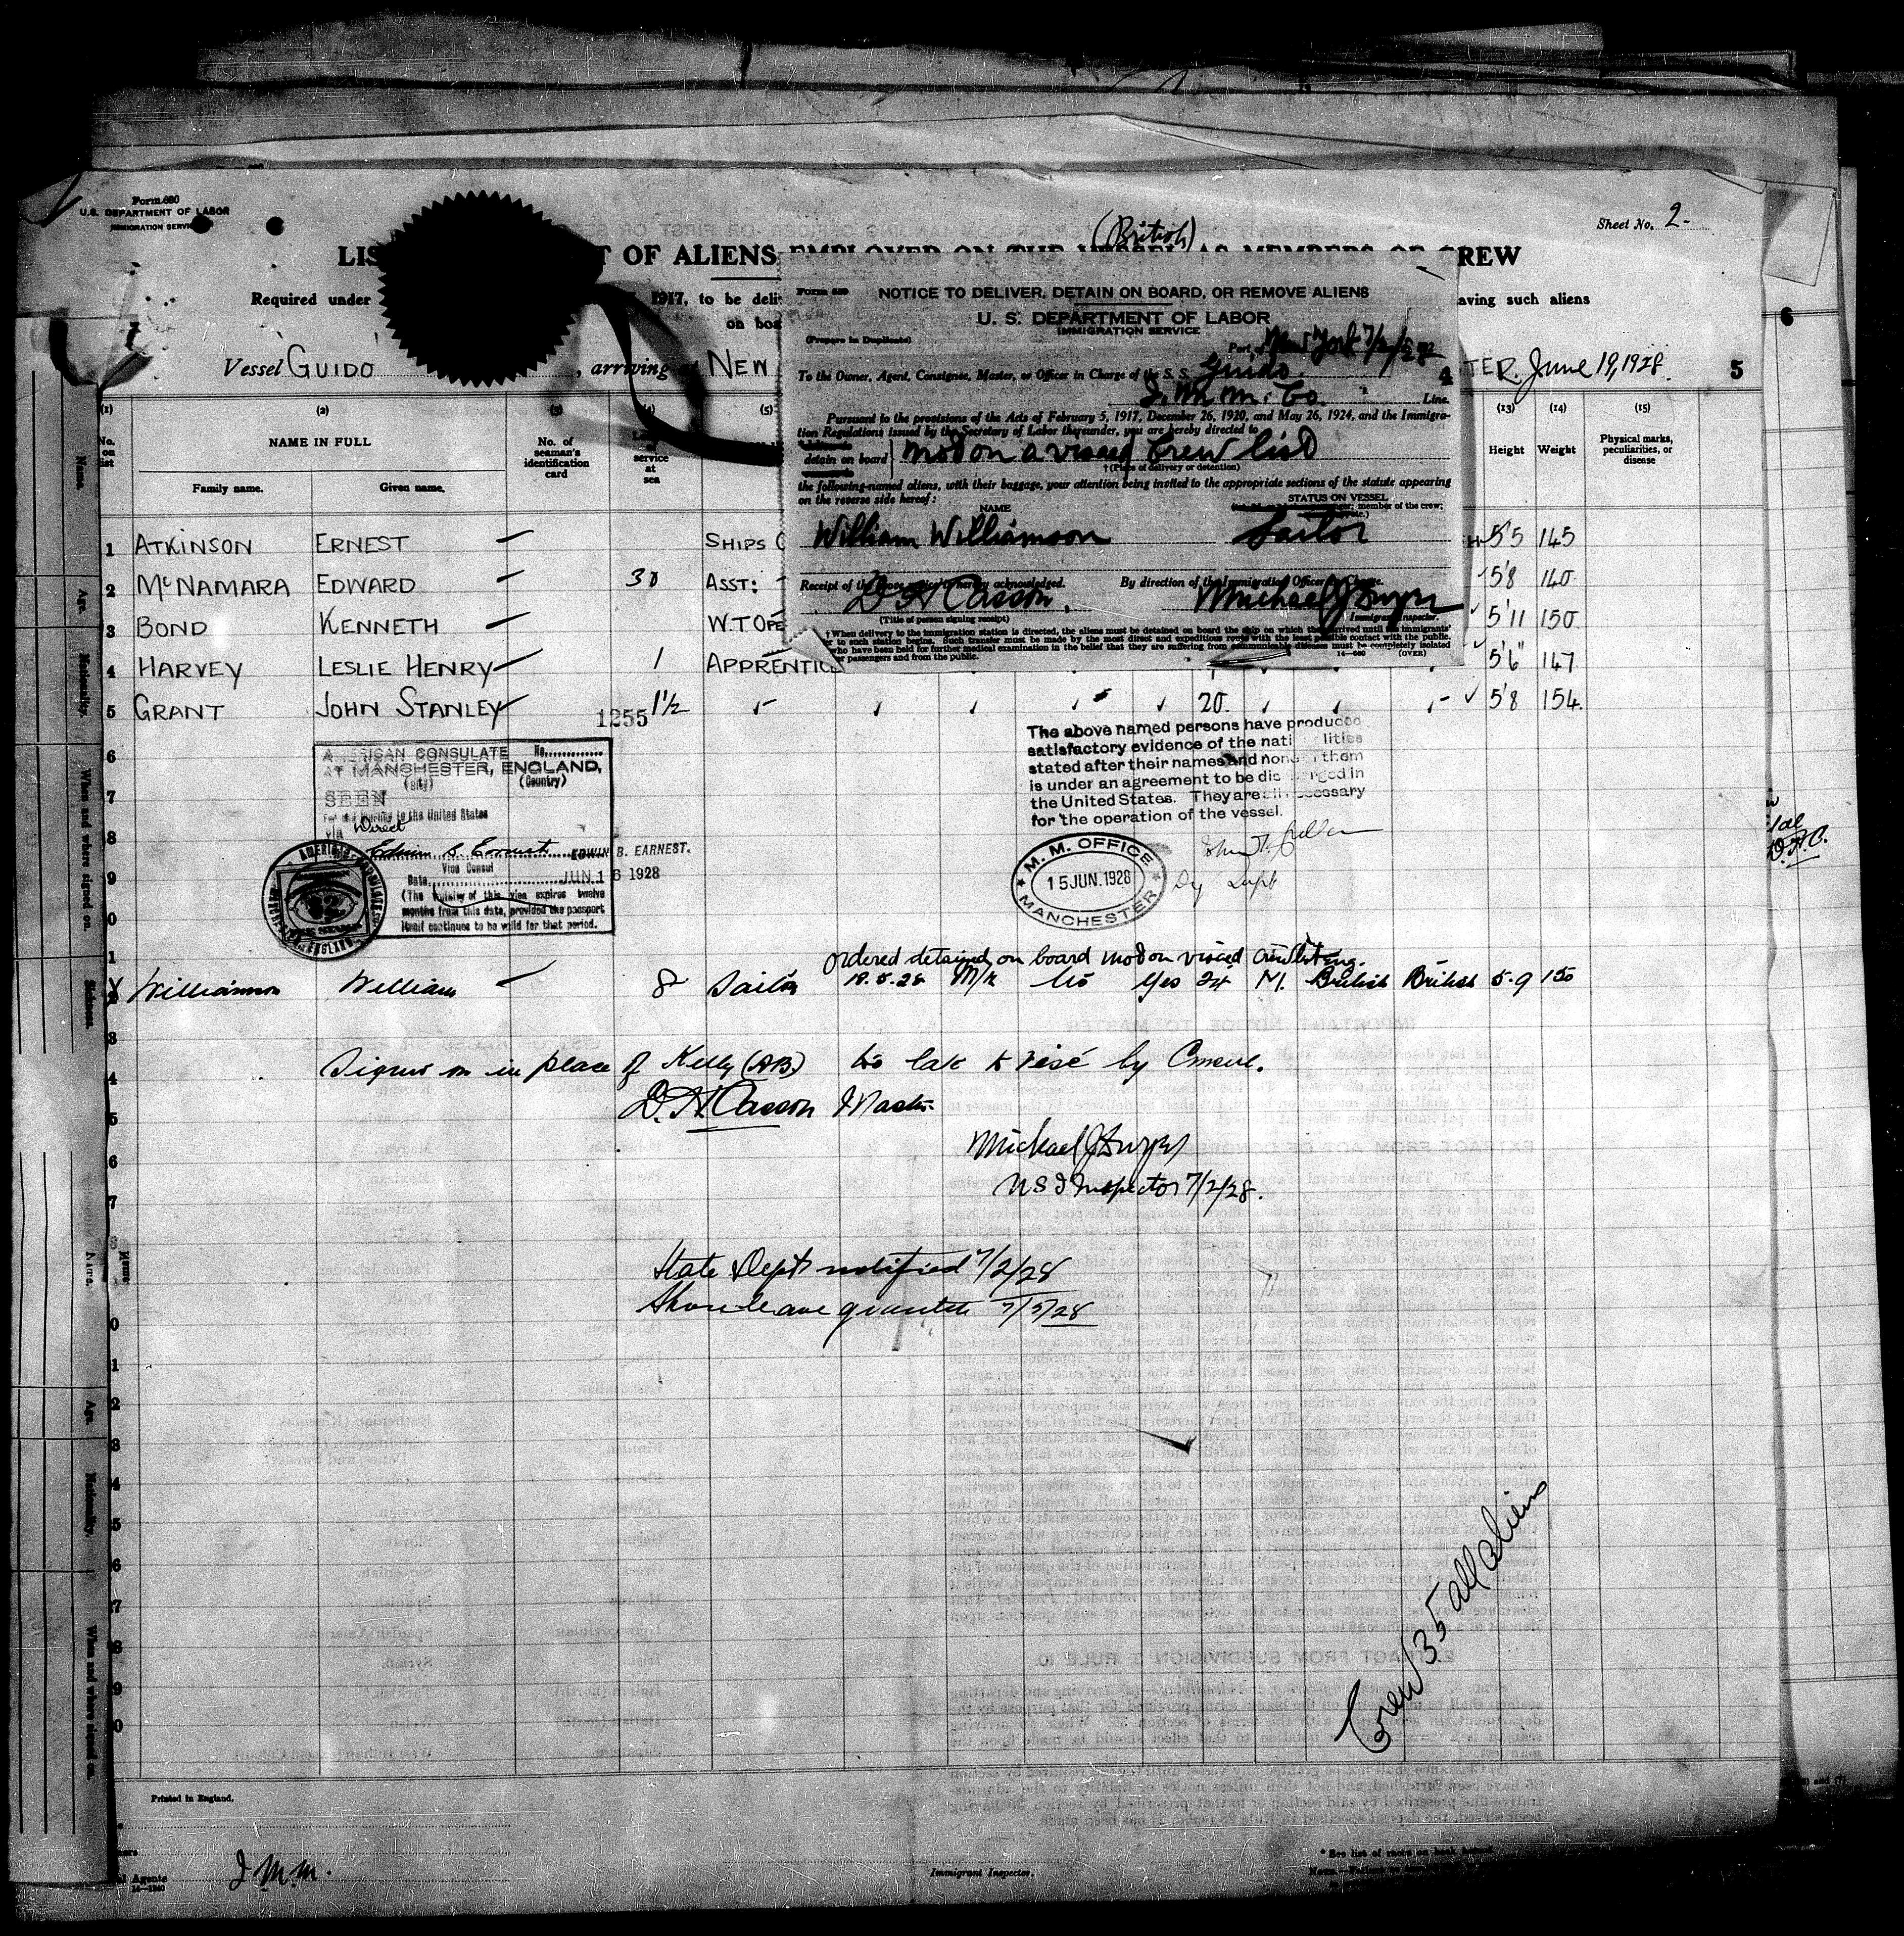 Form 680
U.S. DEPARTMENT OF LABOR
IMMIGRATION SERVICE
Sheet No. 2-
(British)
LIS T OF ALIENS EMPLOYED ON THE VESSEL AS MEMBERS OF CREW
Required under 1917, to be deli aving such aliens
on boa
Vessel GUIDO , arriving NEW TER. June 19, 1928.
5
6
4
Form 589
NOTICE TO DELIVER, DETAIN ON BOARD, OR REMOVE ALIENS
U. S. DEPARTMENT OF LABOR
IMMIGRATION SERVICE
(Prepare in Duplicate)
Port New York 7/2/28
To the Owner, Agent, Consignee, Master, or Officer in Charge of the S. S. Guido.
I. M. M. Co. Line.
Pursuant to the provisions of the Acts of February 5, 1917, December 26, 1920, and May 26, 1924, and the Immigra-
tion Regulations issued by the Secretary of Labor thereunder, you are hereby directed to
detain on board not on a visaed Crew list
† (Place of delivery or detention)
the following-named aliens, with their baggage, your attention being invited to the appropriate sections of the statute appearing
on the reverse side hereof:
NAME
STATUS ON VESSEL
member of the crew;
William Williamson Sailor
Receipt of the above notice is hereby acknowledged. By direction of the Immigration Officer in Charge.
D H Casson.
(Title of person signing receipt)
Immigrant Inspector.
† When delivery to the immigration station is directed, the aliens must be detained on board the ship on which they arrived until the immigrants'
er to such station begins. Such transfer must be made by the most direct and expeditious route with the least possible contact with the public.
who have been held for further medical examination in the belief that they are suffering from communicable diseases must be completely isolated
er passengers and from the public.
14—680 (OVER)
(1) (2) (3) (4) (5) (13) (14) (15)
No. on list
NAME IN FULL
Family name. Given name.
No. of seaman's identification card
service at sea
Height Weight Physical marks, peculiarities, or disease
1 ATKINSON ERNEST SHIPS 5'5 145
2 McNAMARA EDWARD 30 ASST: 5'8 140
3 BOND KENNETH W.T OPE 5'11 150
4 HARVEY LESLIE HENRY 1 APPRENTIC 5'6" 147
5 GRANT JOHN STANLEY 1½ 20. 5'8 154.
1255
AMERICAN CONSULATE No.
AT MANCHESTER, ENGLAND.
(City) (Country)
SEEN
For the journey to the United States
Via Direct
Edwin B. Earnest EDWIN B. EARNEST.
Vice Consul
Date JUN 16 1928
(The validity of this visa expires twelve
months from this date, provided the passport
itself continues to be valid for that period.
The above named persons have produced
satisfactory evidence of the nationalities
stated after their names and none of them
is under an agreement to be discharged in
the United States. They are all necessary
for the operation of the vessel.
M. M. OFFICE
15 JUN. 1928
MANCHESTER
Dy Supt
ordered detained on board not on visaed crew list
Williamson William 8 Sailor 18.6.28 M/R Yes 24 M. British British 5.9 150
Signed on in place of Kelly (AB) too late to visé by Consul.
D. H. Casson Master
US I Inspector 7/2/28.
State Dept notified 7/2/28
Shore leave granted 7/3/28
Crew 35 all aliens
Printed in England.
Agents
14—1240
I M M.
Immigrant Inspector.
* See list of races on back
Name.
Age.
Nationality.
When and where signed on.
Name.
Age.
Nationality.
When and where signed on.